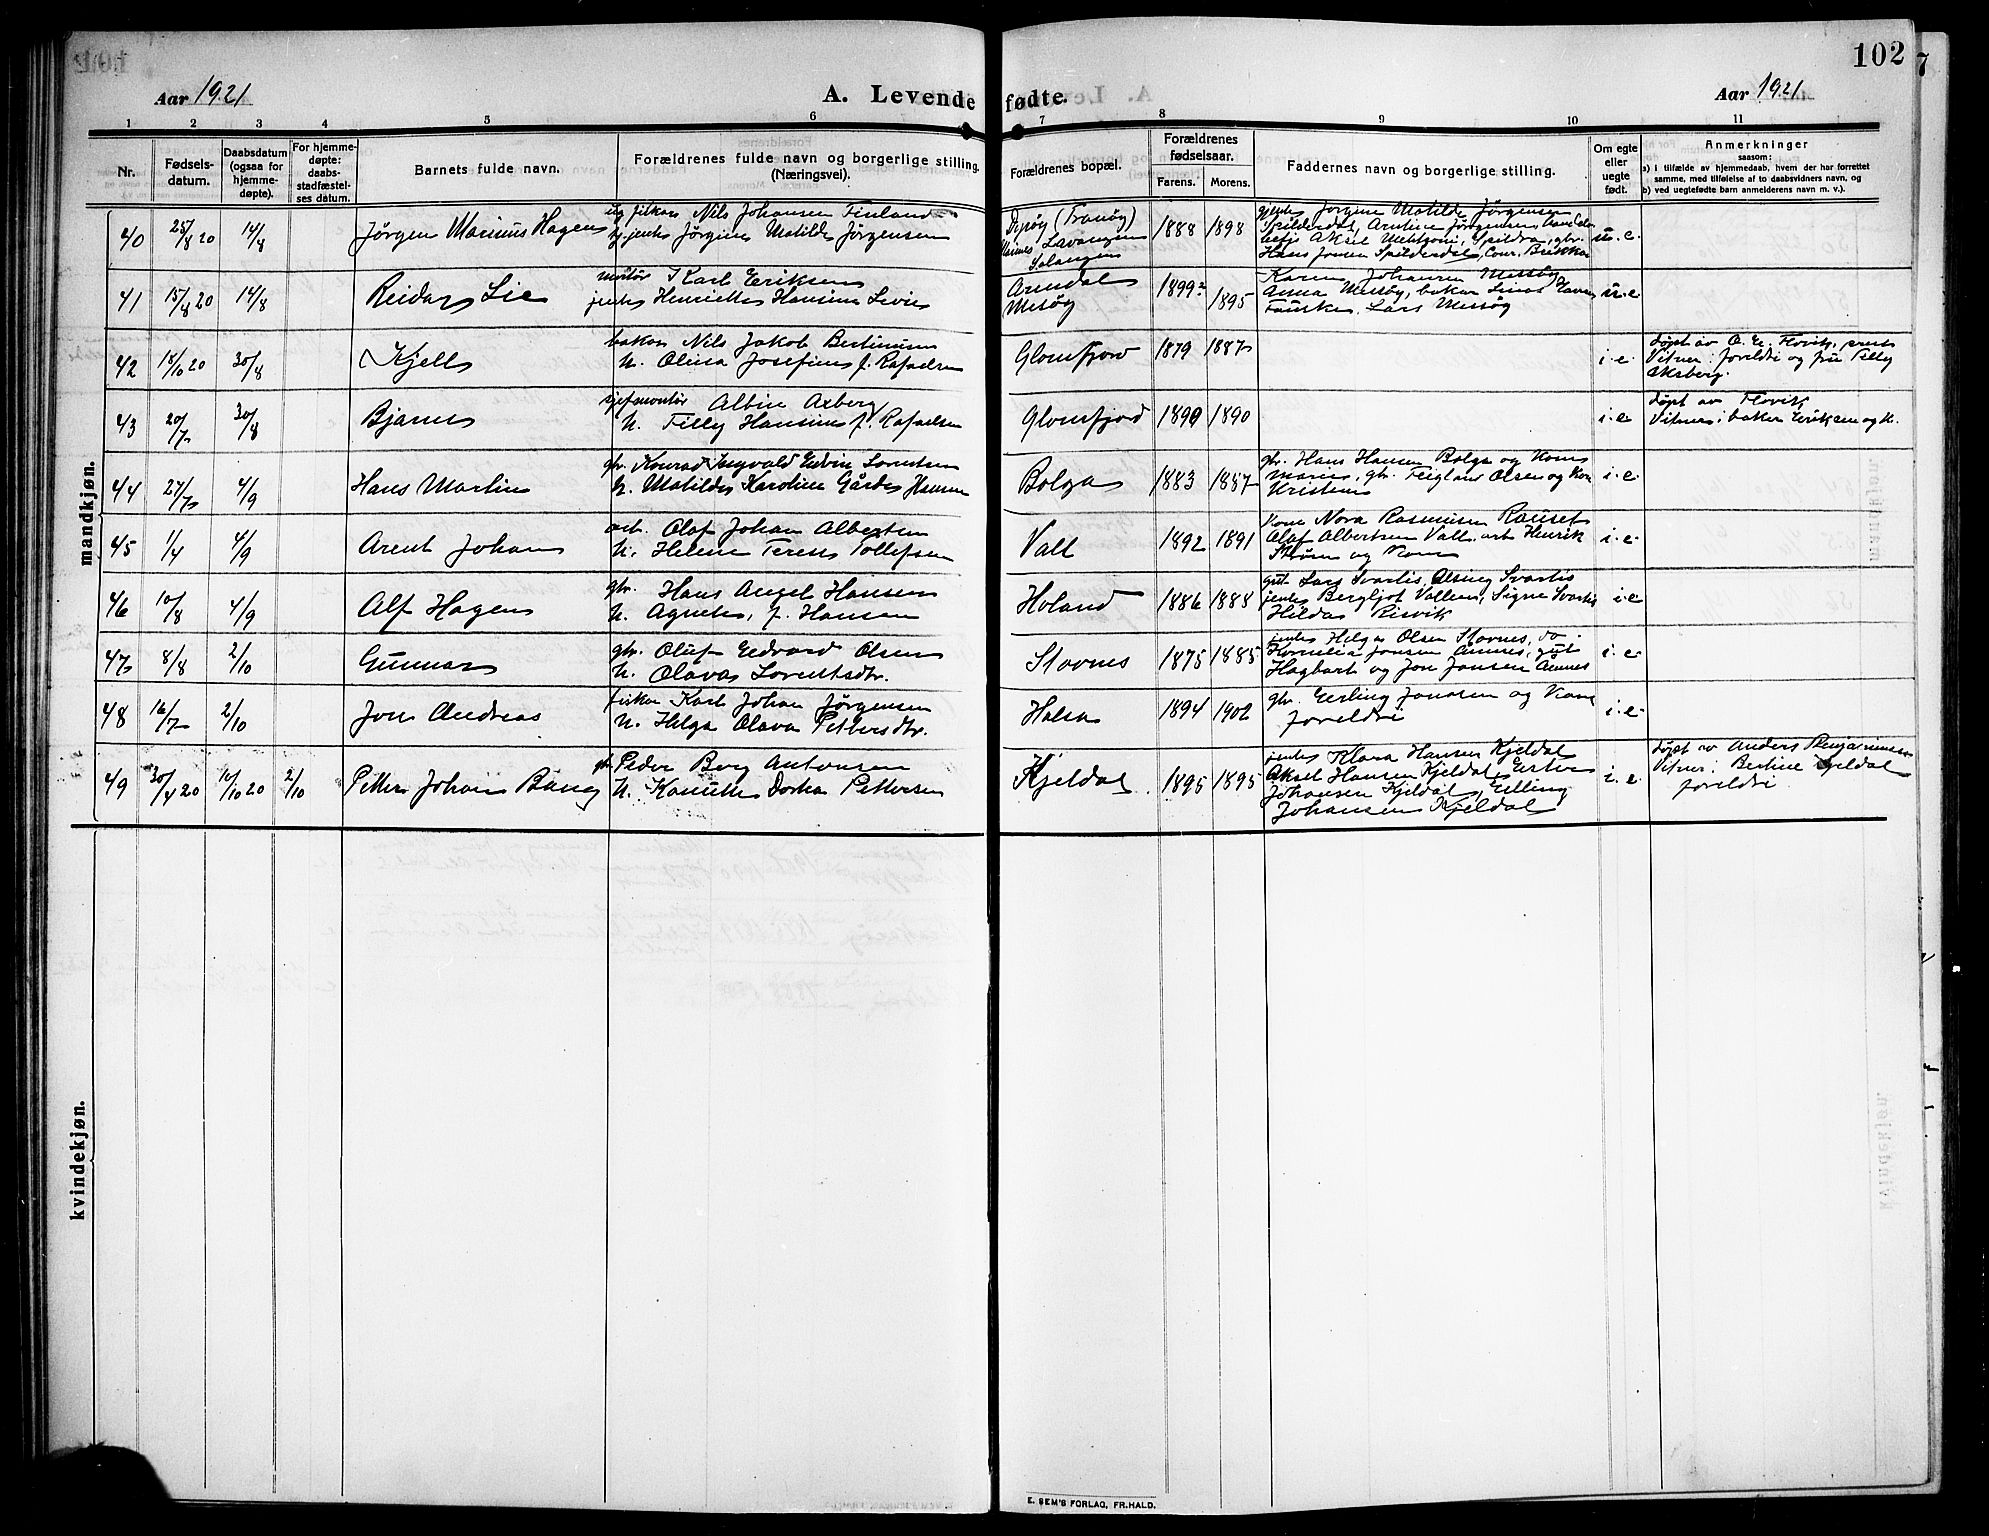 102
Aar 1921
A. Levende fødte.
Aar 1921
1 2 3 4 5 6 7 8 9 10 11
Nr.
Fødsels-
datum.
Daabsdatum
(ogsaa for
hjemme-
døpte).
For hjemme-
døpte:
daabs-
stadfæstel-
ses datum.
Barnets fulde navn.
Forældrenes fulde navn og borgerlige stilling.
(Næringsvei).
Forældrenes bopæl.
Forældrenes
fødselsaar.
Farens. Morens.
Faddernes navn og borgerlige stilling.
Om egte
eller
uegte
født.
Anmerkninger
saasom:
a) i tilfælde av hjemmedaab, hvem der har forrettet
samme, med tilføielse af to daabsvidners navn, og
b) ved uegtefødte barn anmelderens navn m. v.).
mandkjøn.
40 25/8 20 14/8 Jørgen Marinus Hagen
ug. fiskar Nils Johansen Finland
jente Jørgine Matilde Jørgensen
Dyrøy (Tranøy)
Lavangen
Salangen
1888 1898
Jørgine Matilde Jørgensen
Spilderdal, Arntine Jørgensen
Aksel Spildra, gbr.
Hans Jensen Spilderdal,
u. e.
41 15/8 20 14/8 Reidar Lie
montør Karl Eriksen
jente Henriette Hansine Levie
Arendal
Mesøy
1899? 1895
Karen Johansen Mesøy
Anna Mesøy, bakar
Lars Mesøy
u. e.
42 18/10 20 30/8 Kjell
bakar Nils Jakob Bertinusen
h. Olina Josefine f. Rafaelsen
Glomfjord
1879 1887
i. e.
døpt av O. E. Flovik, prest
Vitner: foreldre og fru Tilly
Aksberg.
43 20/7 30/8 Bjarne
sjefmontør Albin Axberg
h. Tilly Hansine f. Rafaelsen
Glomfjord
1890 1890
i. e.
døpt av Flovik
Vitner: baker Eriksen og h.
44 27/7 4/9 Hans Martin
gbr. Konrad Ingvald Edvin Lorntsen
h. Matilde Karoline Gårda Hansen
Bolga
1883 1887
gbr. Hans Hansen Bolga og kone
Maren, gbr. Olsen og kone
Kristine
i. e.
45 1/4 4/9 Arent Johan
arb. Olaf Johan Albertsen
h. Helene Terese Tollefsen
Vall
1892 1891
kone Nora Rasmusen
Olaf Albertsen Vall, arb. Henrik
Strøm og kone
i. e.
46 10/8 4/9 Alf Hagen
gbr. Hans Angel Hansen
h. Agnete, f. Hansen
Holand
1886 1885
gut Lars Svartis, Svartis
jente Bergljot Vallen, Signe Svartis
Hilda Risvik
i. e.
47 8/8 2/10 Gunnar
gbr. Oluf Edvard Olsen
h. Olava Lorntsdtr.
Stovnes
1875 1885
jente Helga Olsen Stovnes, do
Kornelia Jensen Amnes, gut
Hagbart og Jon Jansen Amnes
i. e.
48 16/7 2/10 Jon Andreas
fiskar Karl Johan Jørgensen
h. Helga Olava Pettersdtr.
Halsa
1894 1902
gbr. Erling Jensen og kone
foreldre
i. e.
49 30/4 20 10/10 20 2/10 Petter Johan Bang
Peder Berg Antonsen
h. Kanutte Dorthea Pettersen
Kjeldal
1895 1895
jente Klara Hansen Kjeldal
Aksel Hansen Kjeldal, Ester
Johansen Kjeldal, Erling
Johansen Kjeldal
i. e.
døpt av Anders Benjaminsen
Vitner: Bertine Kjeldal
foreldre
kvindekjøn.
E. SEM'S FORLAG, FR.HALD.